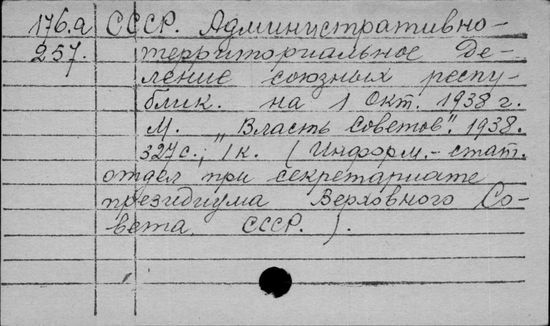 176.а СССР. Административно-
257. территориальное де-
ление союзных респу-
блик. на 1 Окт. 1938 г.
М. „Власть Советов". 1938.
327 с.; 1 к. (Информ.-стат.
отдел при секретариате
президиума Верховного Со-
вета СССР.).